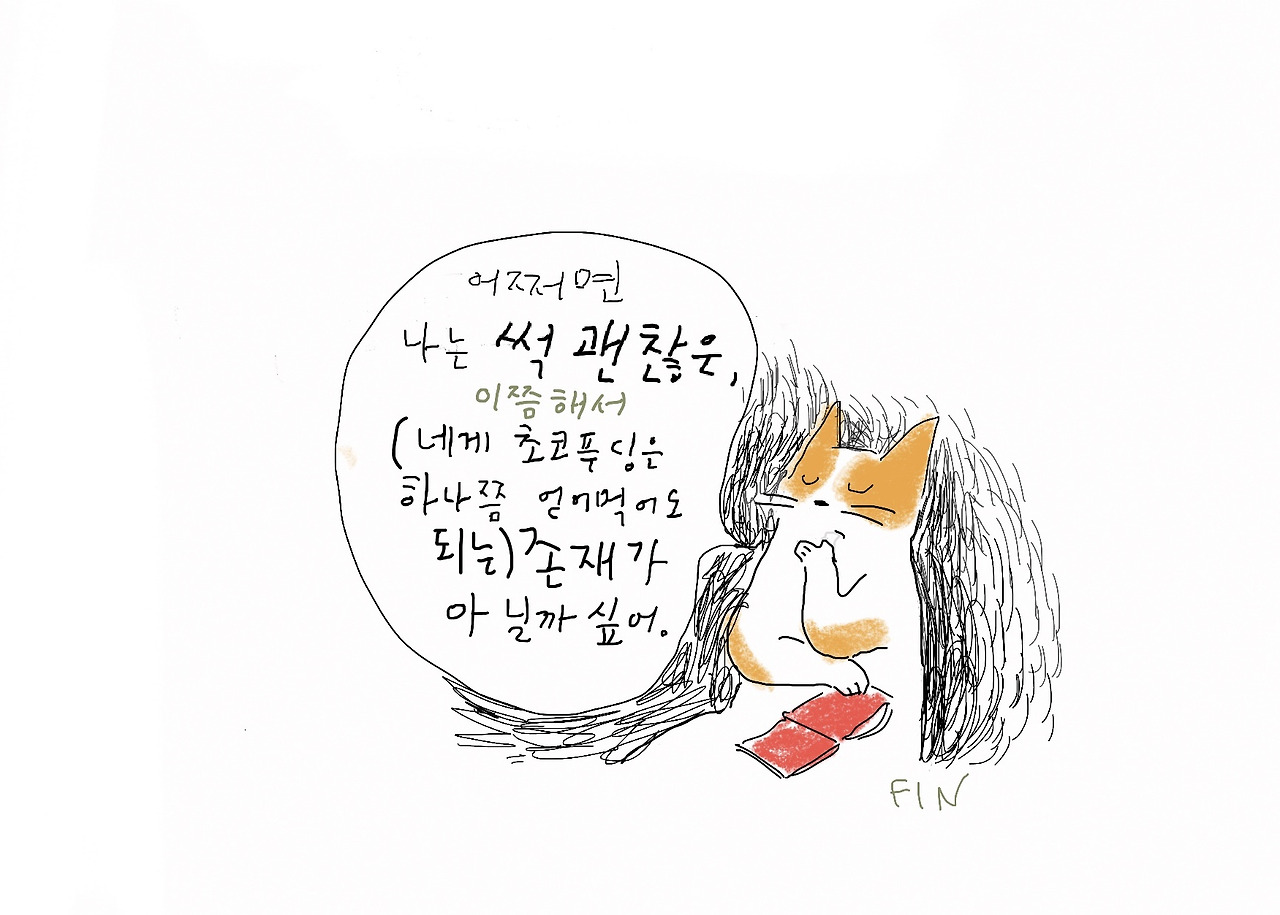 어쩌면
나는 썩 괜찮은,
이쯤해서
(네게 초코푸딩은
하나쯤 얻어먹어도
되는)존재가
아닐까 싶어.
FIN